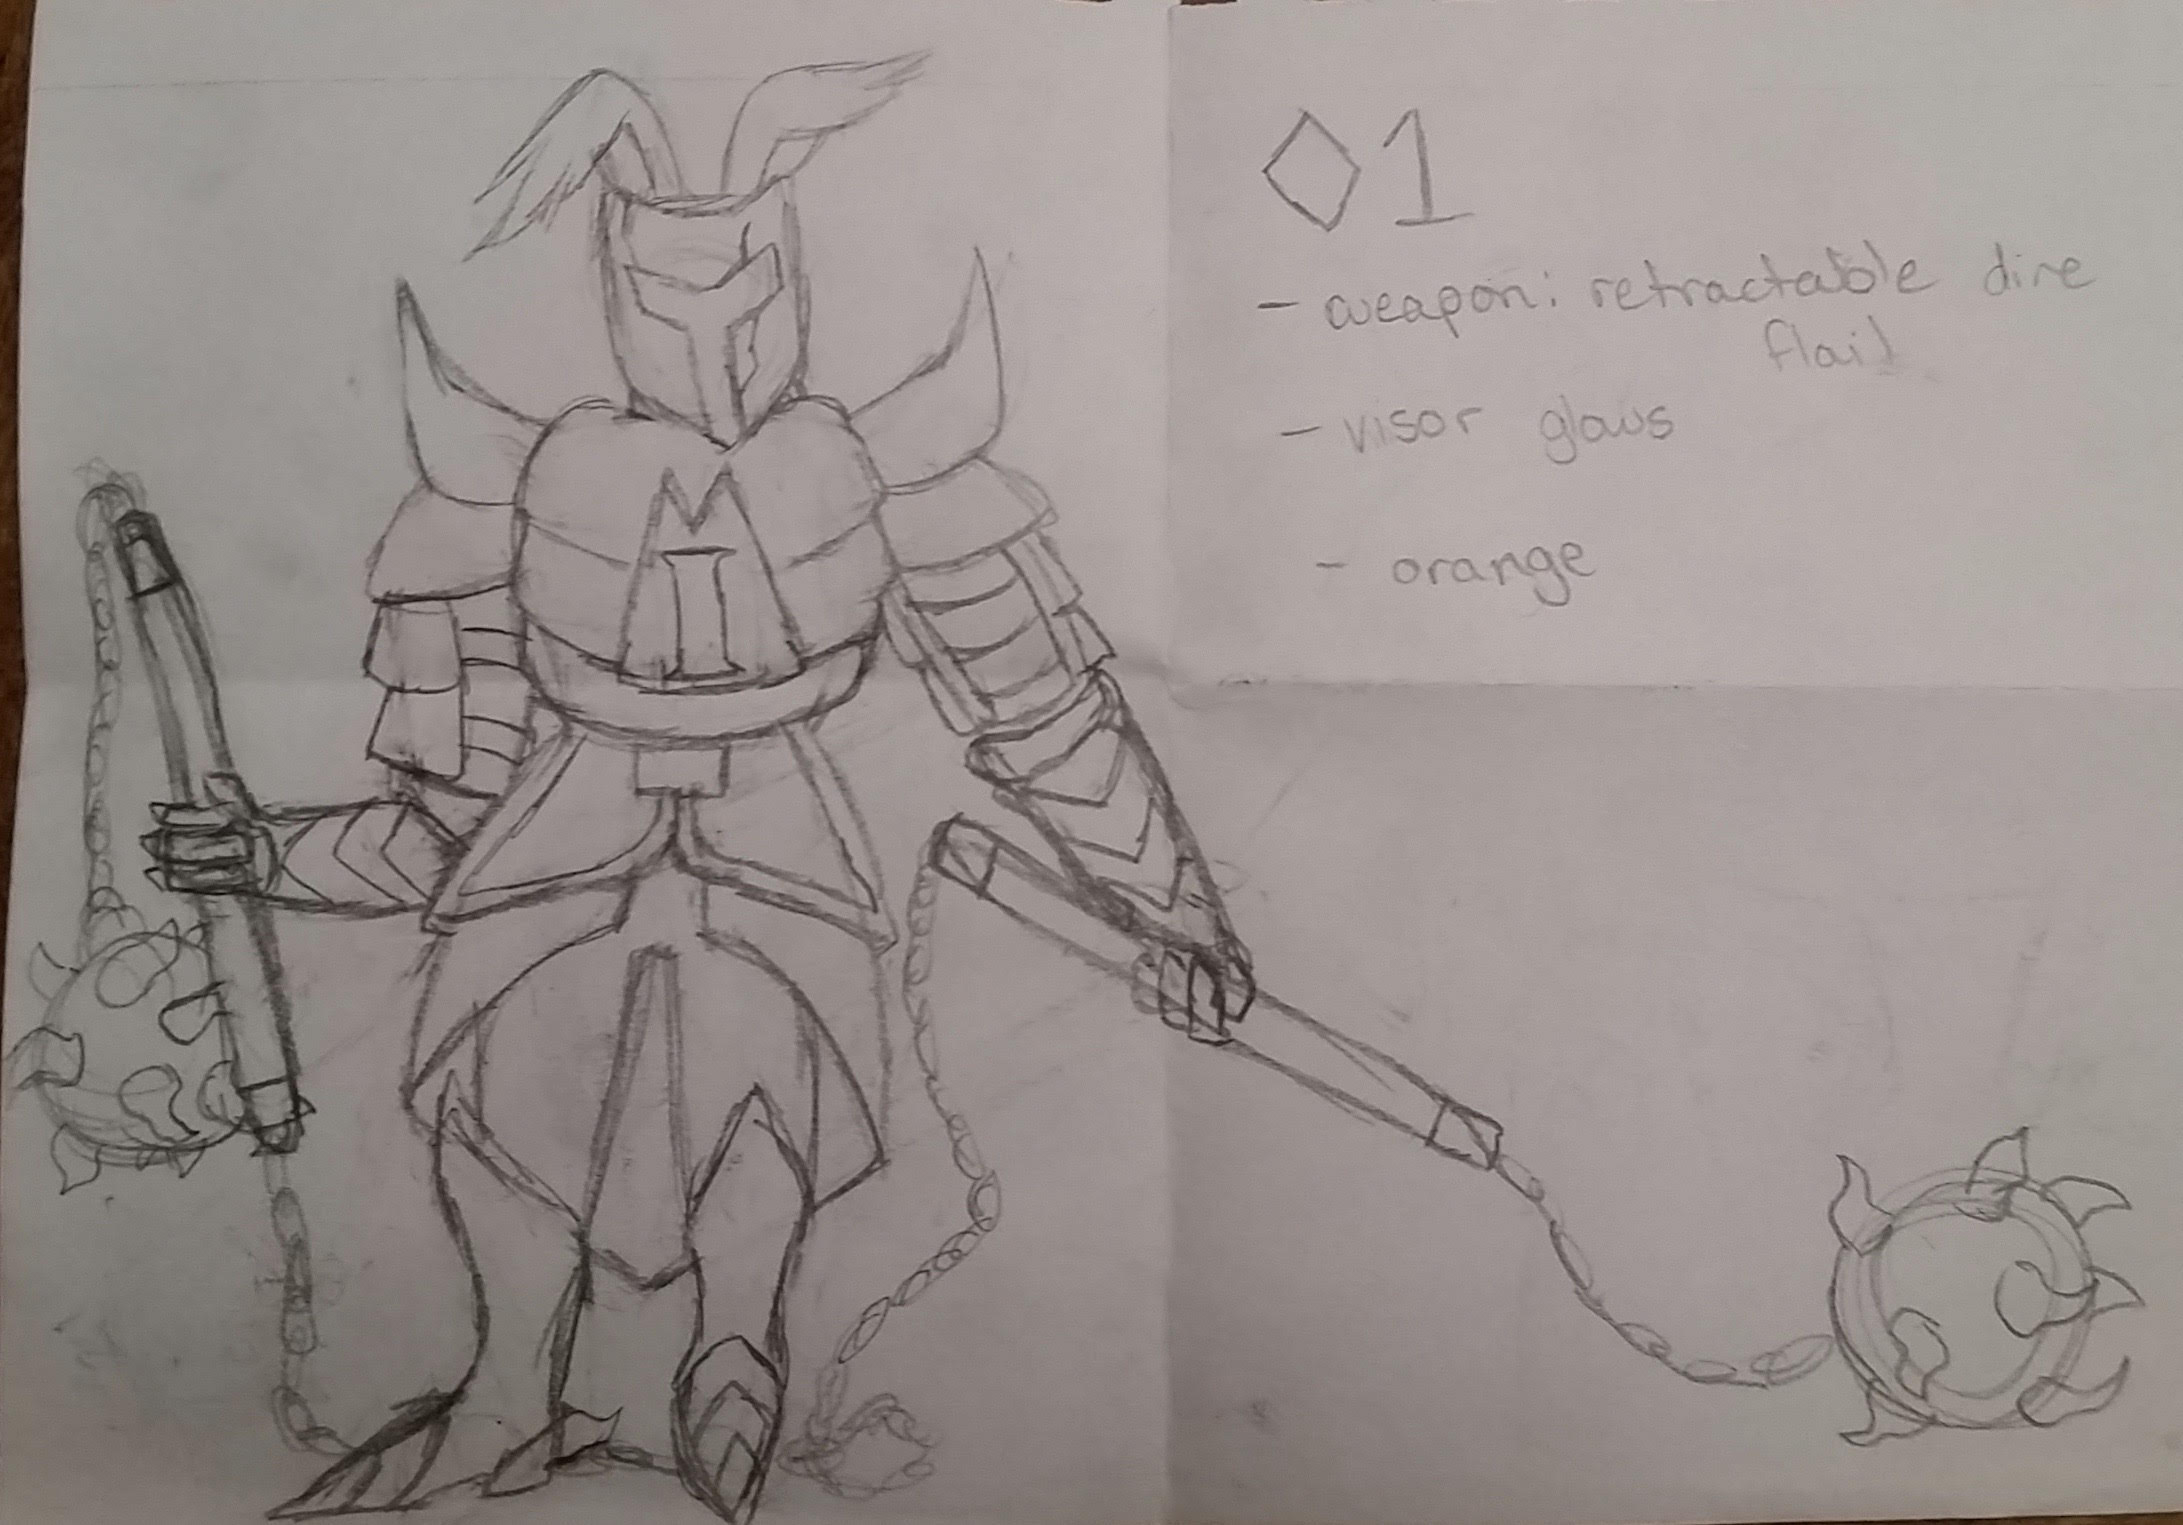 I
◇1
- weapon: retractable dire
flail
- visor glows
- orange